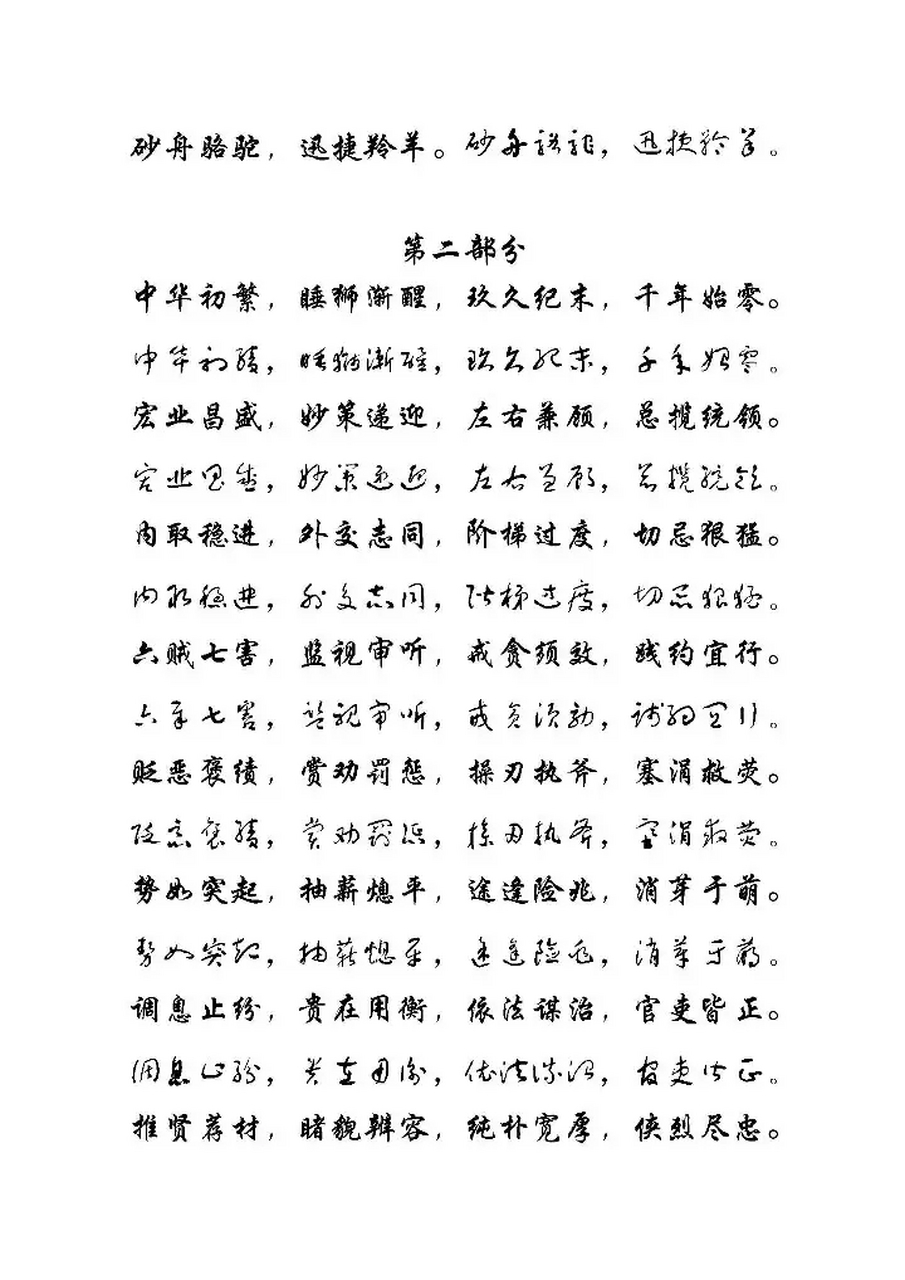 砂舟骆驼，迅捷羚羊。砂舟骆驼，迅捷羚羊。
第二部分
中华初繁，睡狮渐醒，玖久纪末，千年始零。
中华初繁，睡狮渐醒，玖久纪末，千年始零。
宏业昌盛，妙策递迎，左右兼顾，总揽统领。
宏业昌盛，妙策递迎，左右兼顾，总揽统领。
内取稳进，外交志同，阶梯过度，切忌狠猛。
内取稳进，外交志同，阶梯过度，切忌狠猛。
六贼七害，监视审听，戒贪须效，践约宜行。
六贼七害，监视审听，戒贪须效，践约宜行。
贬恶褒绩，赏劝罚惩，操刃执斧，塞涓救荧。
贬恶褒绩，赏劝罚惩，操刃执斧，塞涓救荧。
势如突起，抽薪熄平，途逢险兆，消芽于萌。
势如突起，抽薪熄平，途逢险兆，消芽于萌。
调息止纷，贵在用衡，依法谋治，官吏皆正。
调息止纷，贵在用衡，依法谋治，官吏皆正。
推贤荐材，睹貌辨容，纯朴宽厚，侠烈尽忠。